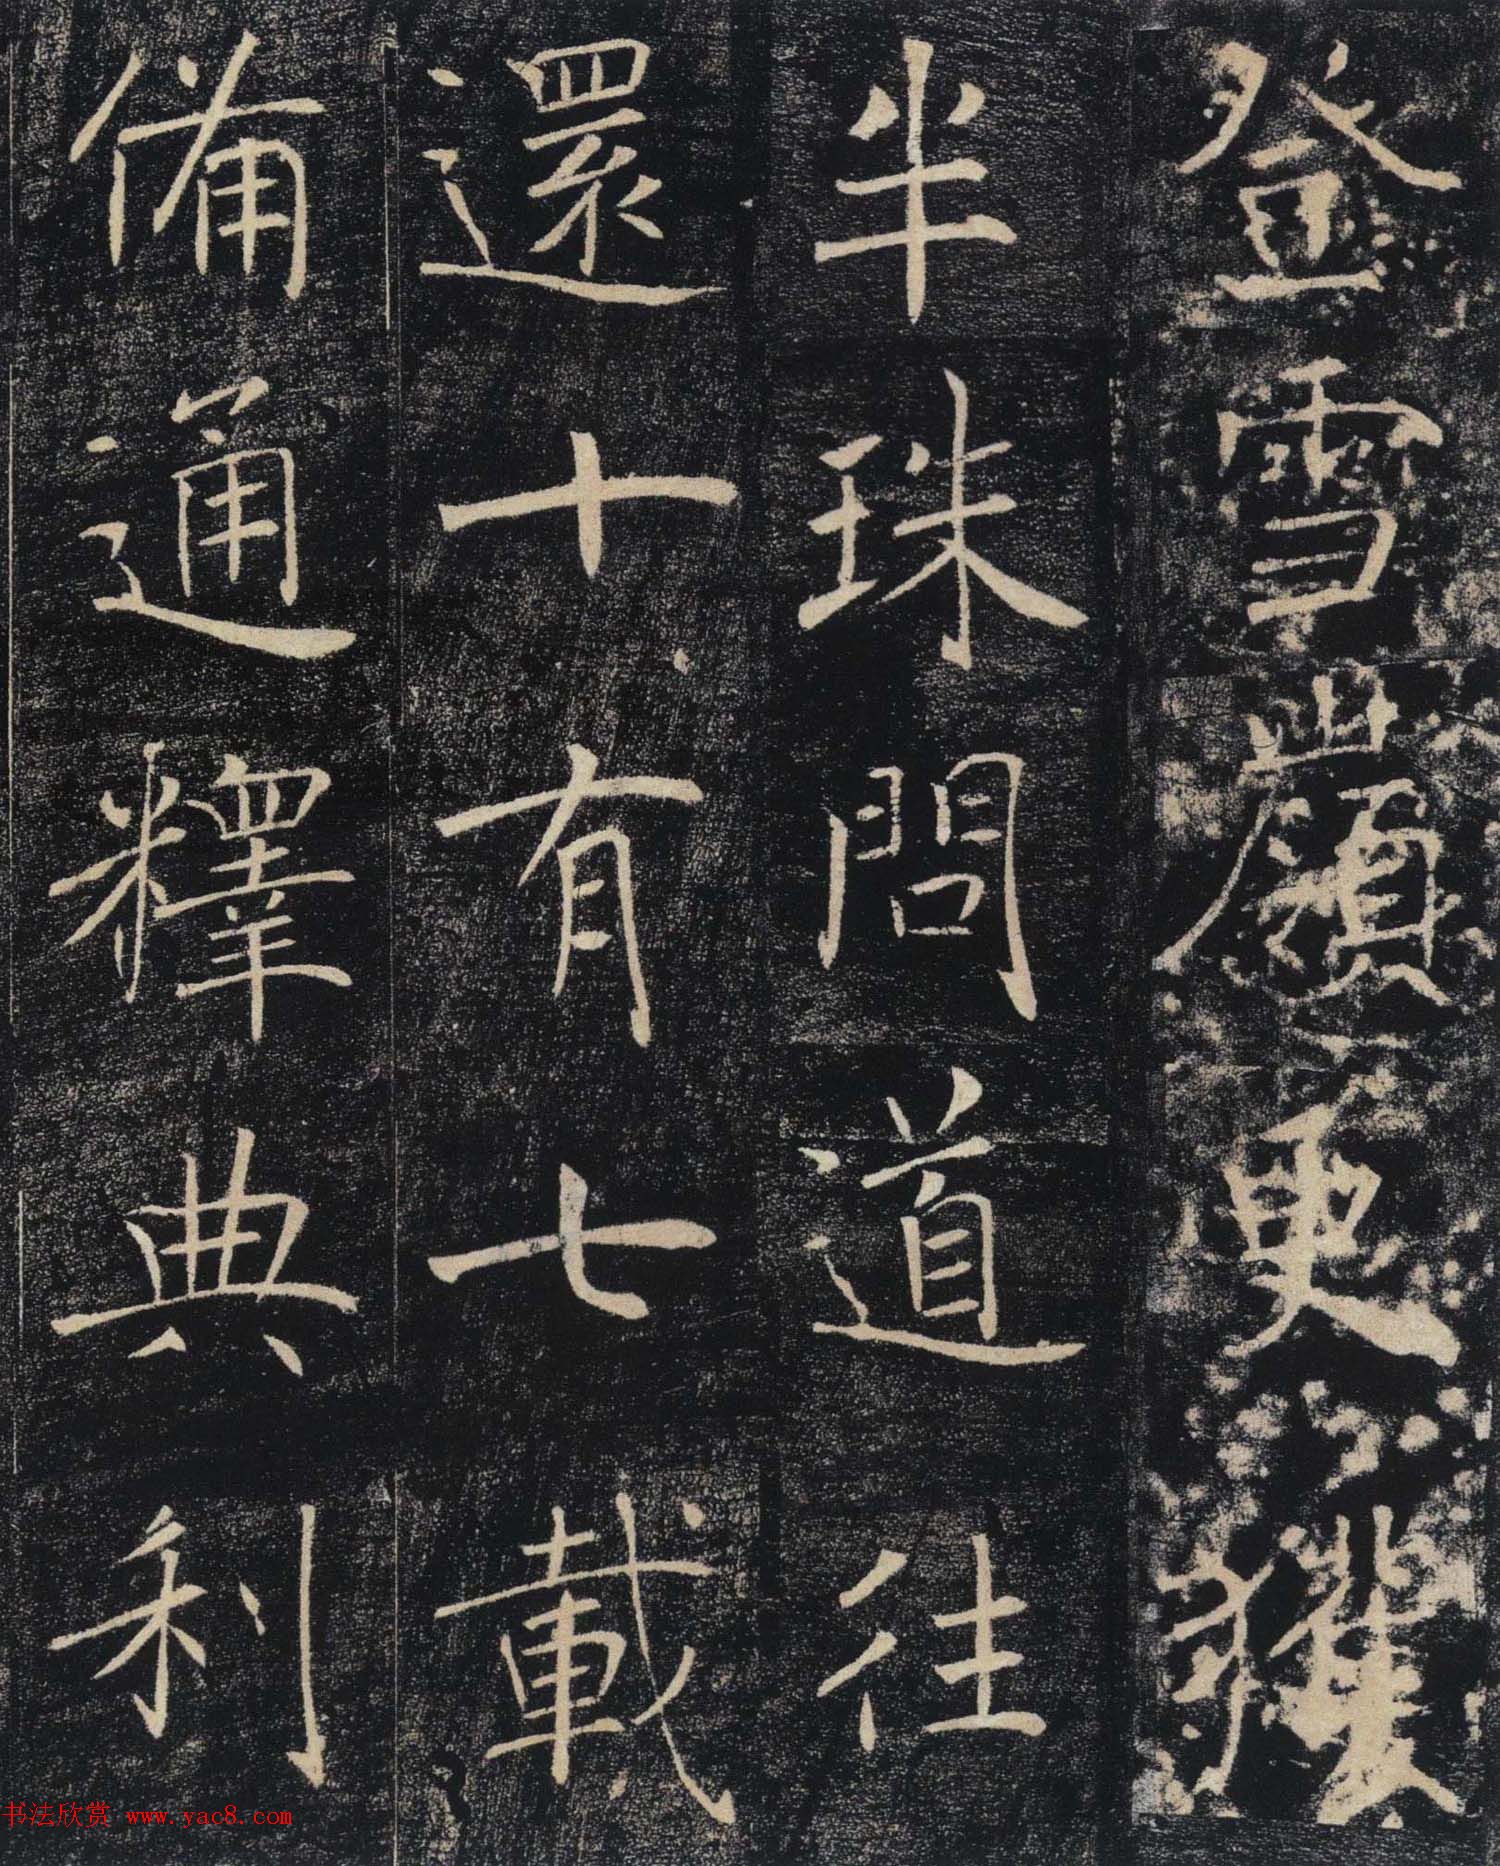 登雪嶺更獲
半珠問道往
還十有七載
備通釋典利
书法欣赏 www.yac8.com